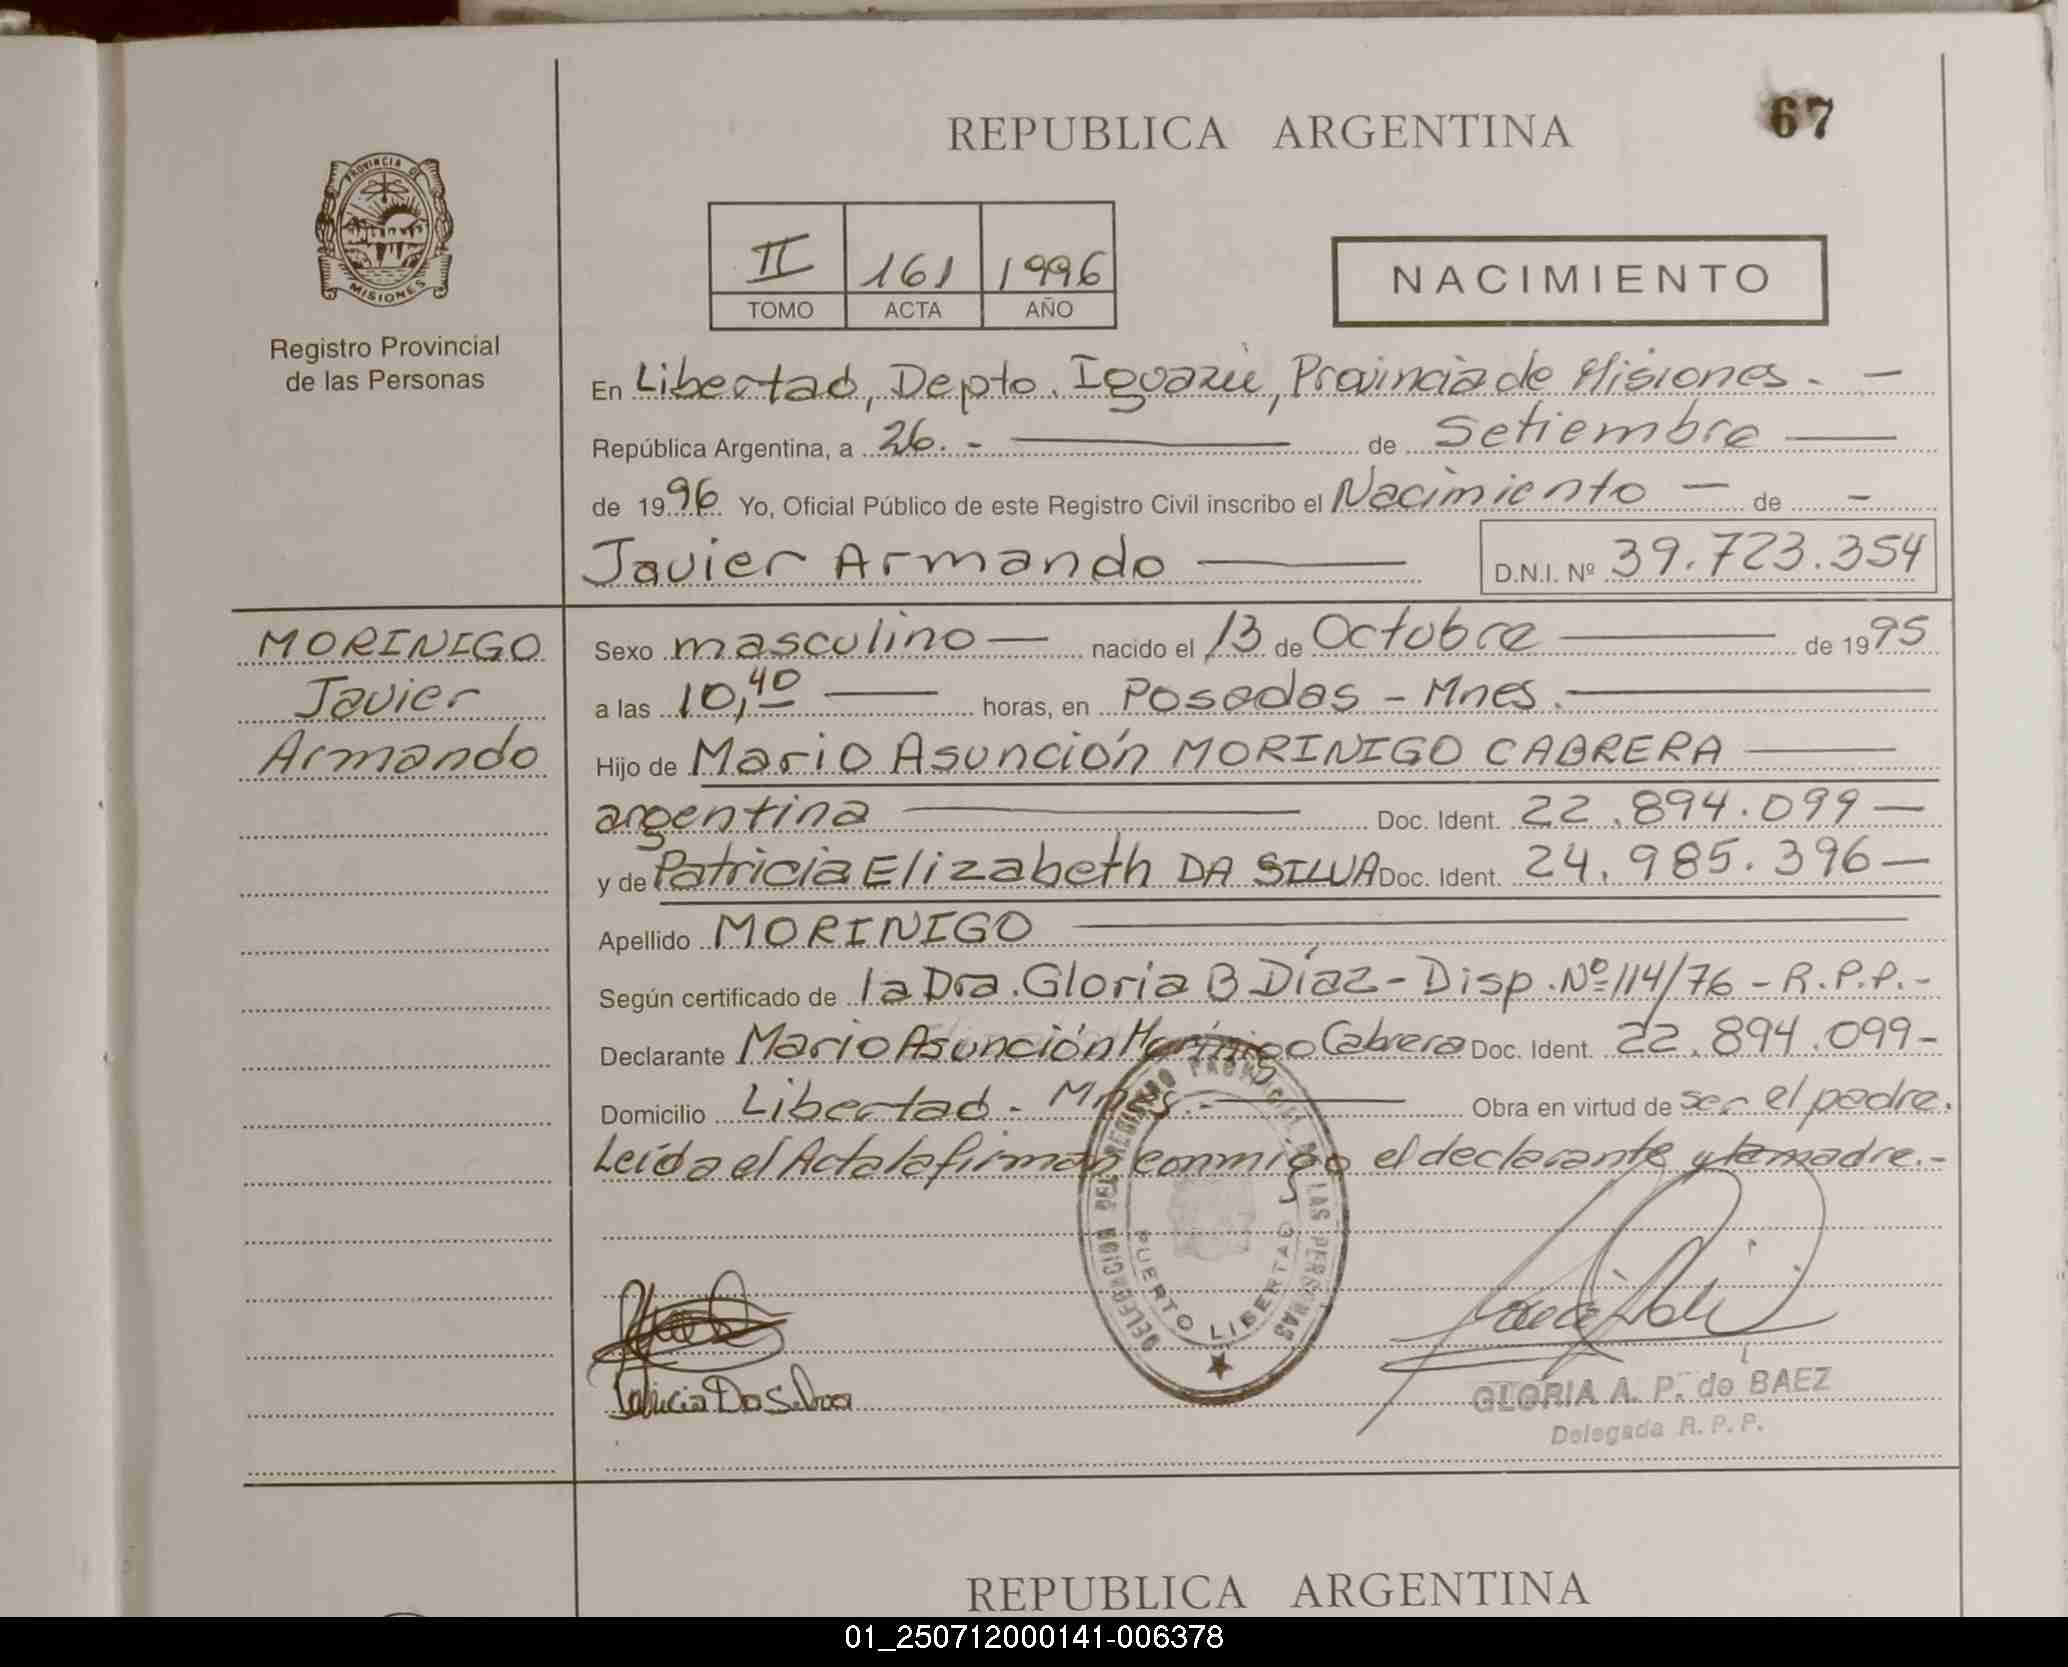 REPUBLICA ARGENTINA
67
PROVINCIA DE
MISIONES
Registro Provincial
de las Personas
II 161 1996
TOMO ACTA AÑO
NACIMIENTO
En Libertad, Depto. Iguazú, Provincia de Misiones. -
República Argentina, a 26. - de Setiembre
de 1996 Yo, Oficial Público de este Registro Civil inscribo el Nacimiento - de -
Javier Armando D.N.I. Nº 39.723.354
MORINIGO
Javier
Armando
Sexo masculino nacido el 13 de Octubre de 1995
a las 10,40 horas, en Posadas - Mnes.
Hijo de Mario Asunción MORINIGO CABRERA
argentina Doc. Ident. 22.894.099 -
y de Patricia Elizabeth DA SILVA Doc. Ident. 24.985.396 -
Apellido MORINIGO
Según certificado de la Dra. Gloria B Díaz - Disp. Nº 114/76 - R.P.P. -
Declarante Mario Asunción Morínigo Cabrera Doc. Ident. 22.894.099 -
Domicilio Libertad - Mnes. - Obra en virtud de ser el padre.
Leída el Acta la firman conmigo el declarante y la madre. -
DELEGACION DEL REGISTRO PROVINCIAL DE LAS PERSONAS
PUERTO LIBERTAD
Patricia Da Silva
GLORIA A. P. de BAEZ
Delegada R. P. P.
REPUBLICA ARGENTINA
01_250712000141-006378